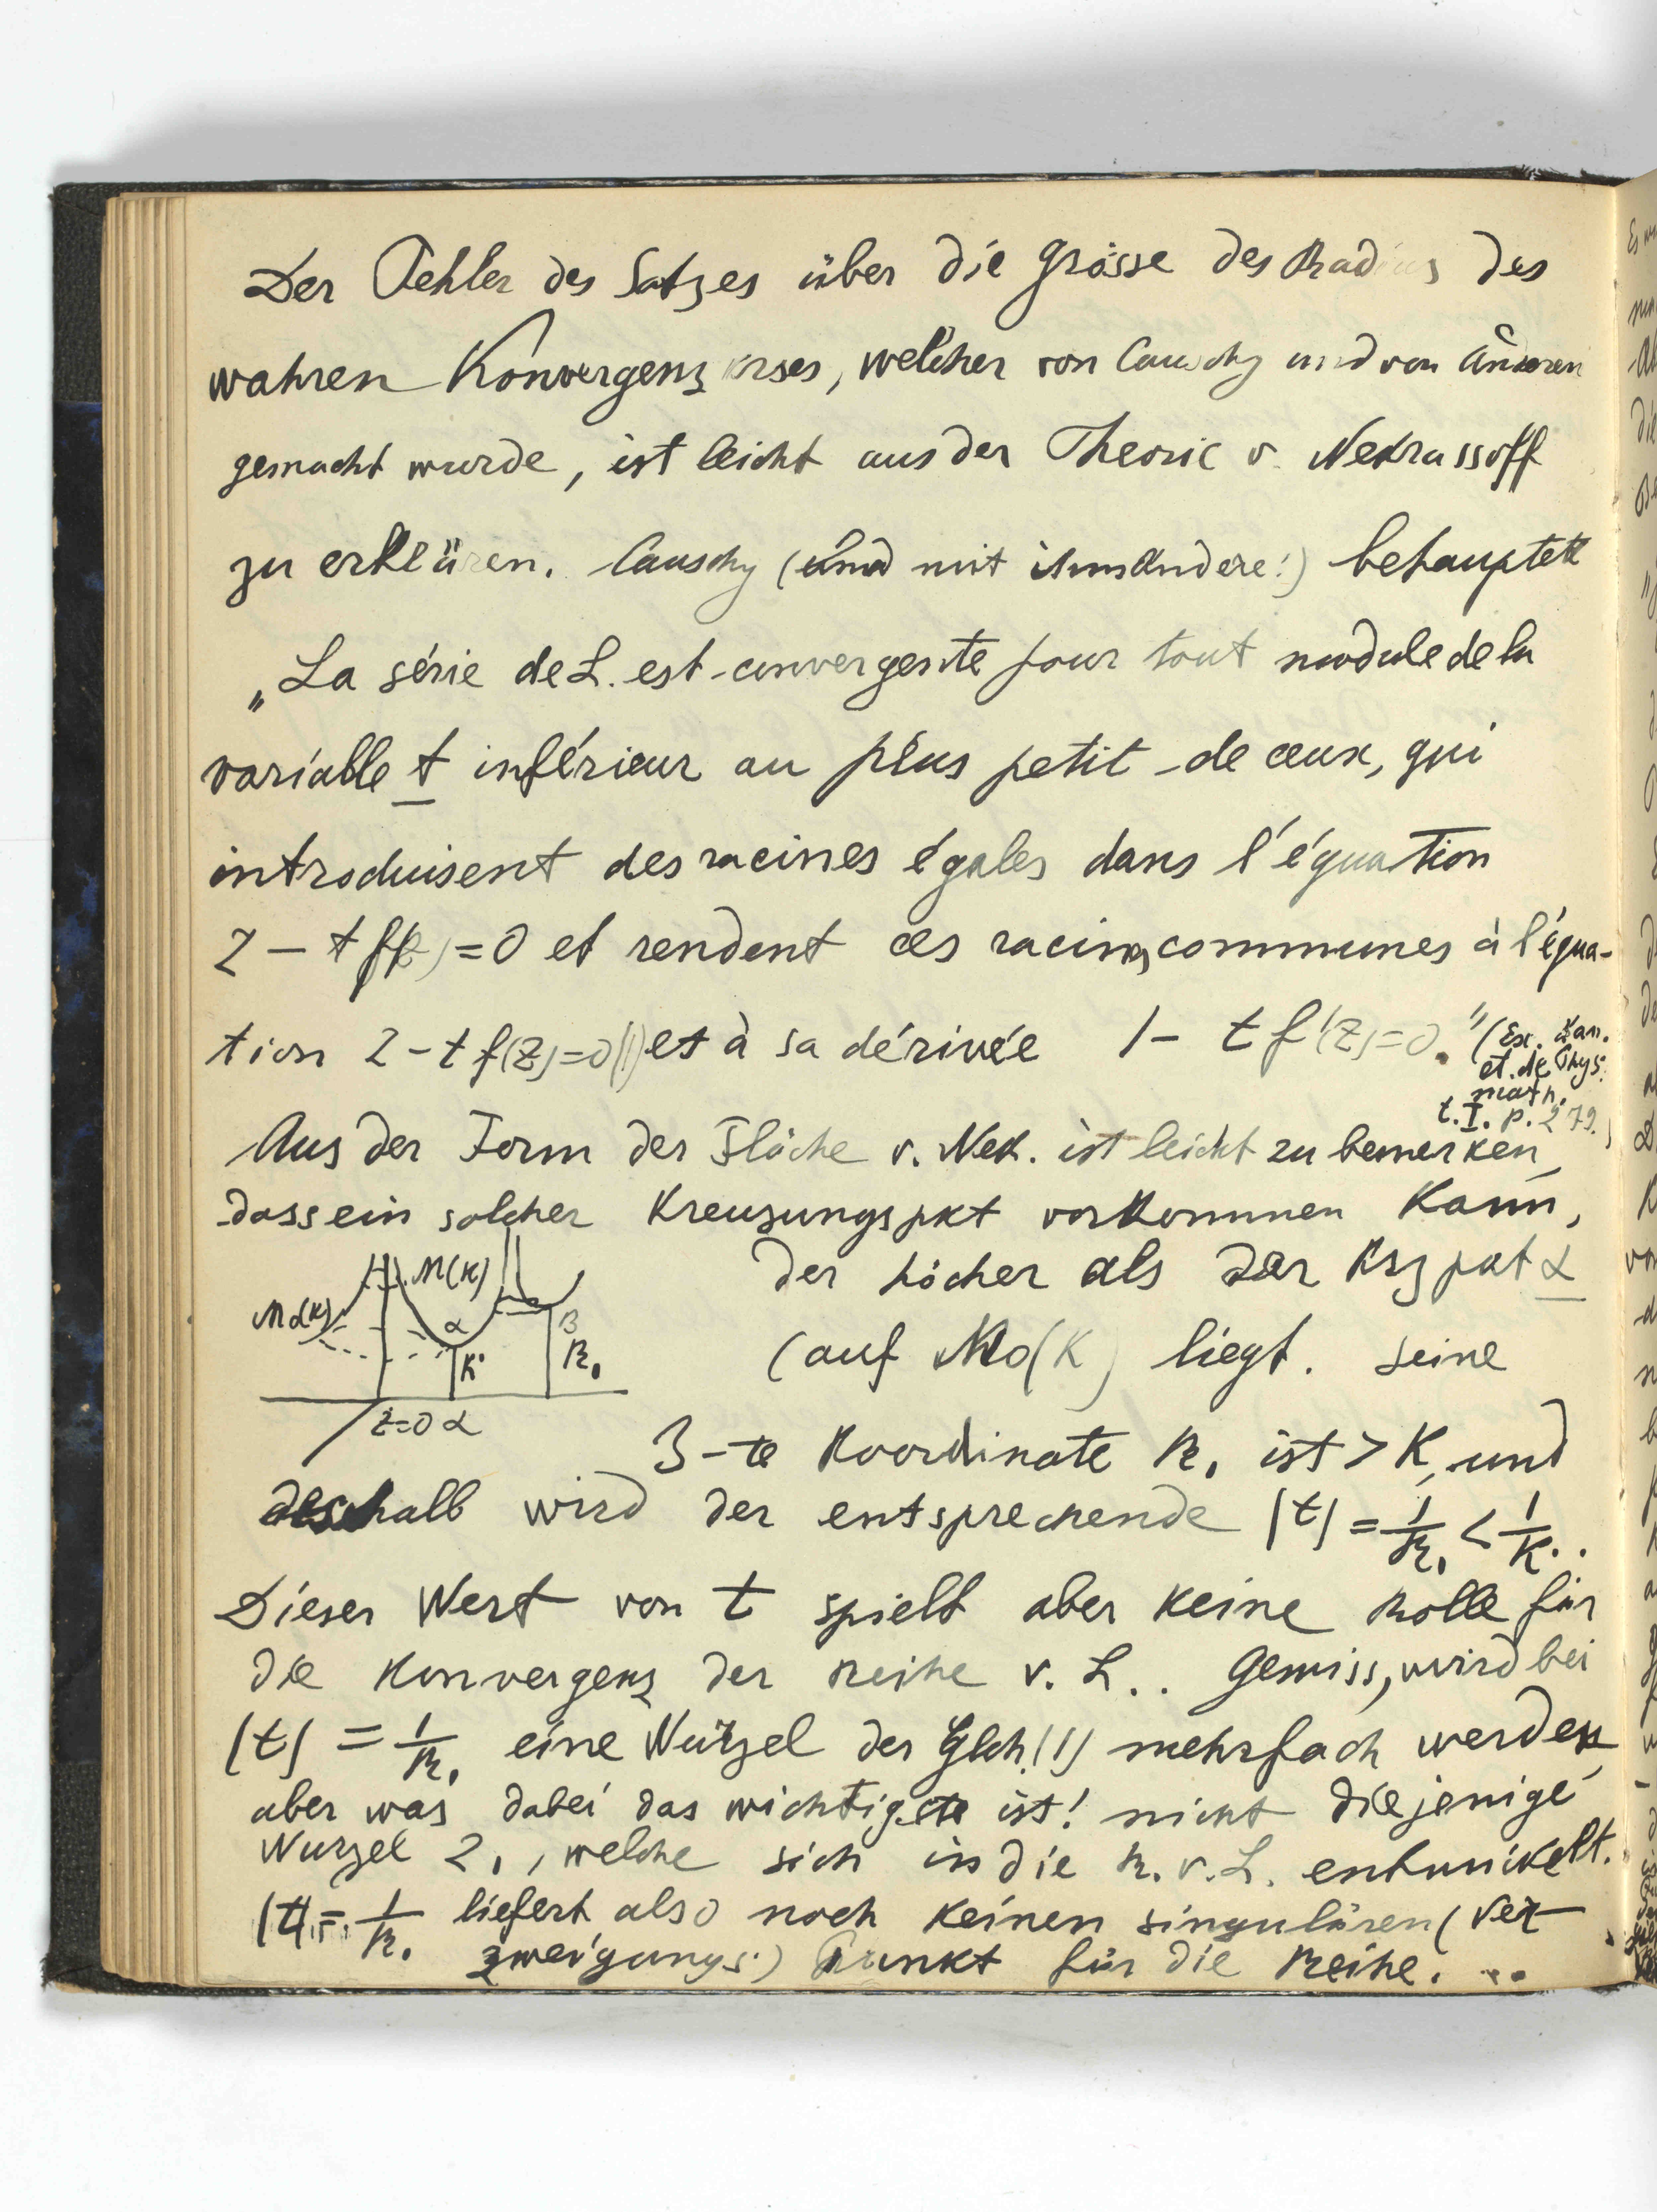 Der Fehler des Satzes über die Grösse des Radius des
wahren Konvergenz krses, welcher von Causchy und von Anderen
gemacht wurde, ist leicht aus der Theorie v. Nekrassoff
zu erklären. Causchy (und mit ihm Andere!) behauptet
„La série de L. est convergente pour tout module de la
variable t inférieur au plus petit de ceux, qui
introduisent des racines égales dans l'équation
z - t f(z) = 0 et rendent ces racines communes à l'équa-
tion z - t f(z) = 0 (1) et à sa dérivée 1 - t f'(z) = 0." (Ex. d'an.
et. de Phys.
math.
t. I. p. 279.)
Aus der Form der Fläche v. Nek. ist leicht zu bemerken,
dass ein solcher Kreuzungspkt vorkommen kann,
der höcher als der Krzpkt α
(auf M0(K) liegt. Seine
3-te Koordinate R₁ ist > K, und
deshalb wird der entsprechende |t| = 1/R₁ < 1/K..
M(K)
α
β
K
R₁
z=0 α
Dieser Wert von t spielt aber keine Rolle für
die Konvergenz der Reihe v. L.. Gewiss, wird bei
|t| = 1/R₁ eine Wurzel der Glch. (1) mehrfach werden,
aber was dabei das wichtigste ist! nicht diejenige
Wurzel z₁, welche sich in die R. v. L. entwickelt.
|t| = 1/R₁ liefert also noch keinen singulären (Ver-
zweigungs) Punkt für die Reihe. ..